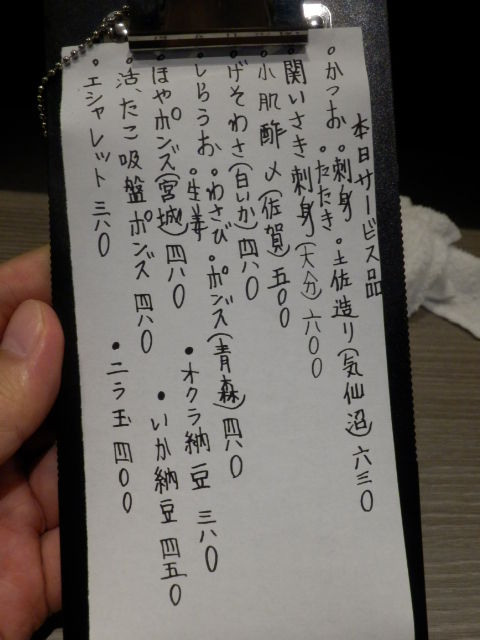 本日サービス品
・かつお ・刺身 ・土佐造り(気仙沼) 六三〇
・たたき
・関いさき刺身(大分) 六〇〇
・小肌酢〆(佐賀) 五〇〇
・げそわさ(白いか) 四八〇
・しらうお ・わさび ・ポンズ(青森) 四八〇
・生姜
・ほやポンズ(宮城) 四八〇
・オクラ納豆 三八〇
・活、たこ吸盤ポンズ 四八〇
・いか納豆 四五〇
・エシャレット 三八〇
・ニラ玉 四〇〇